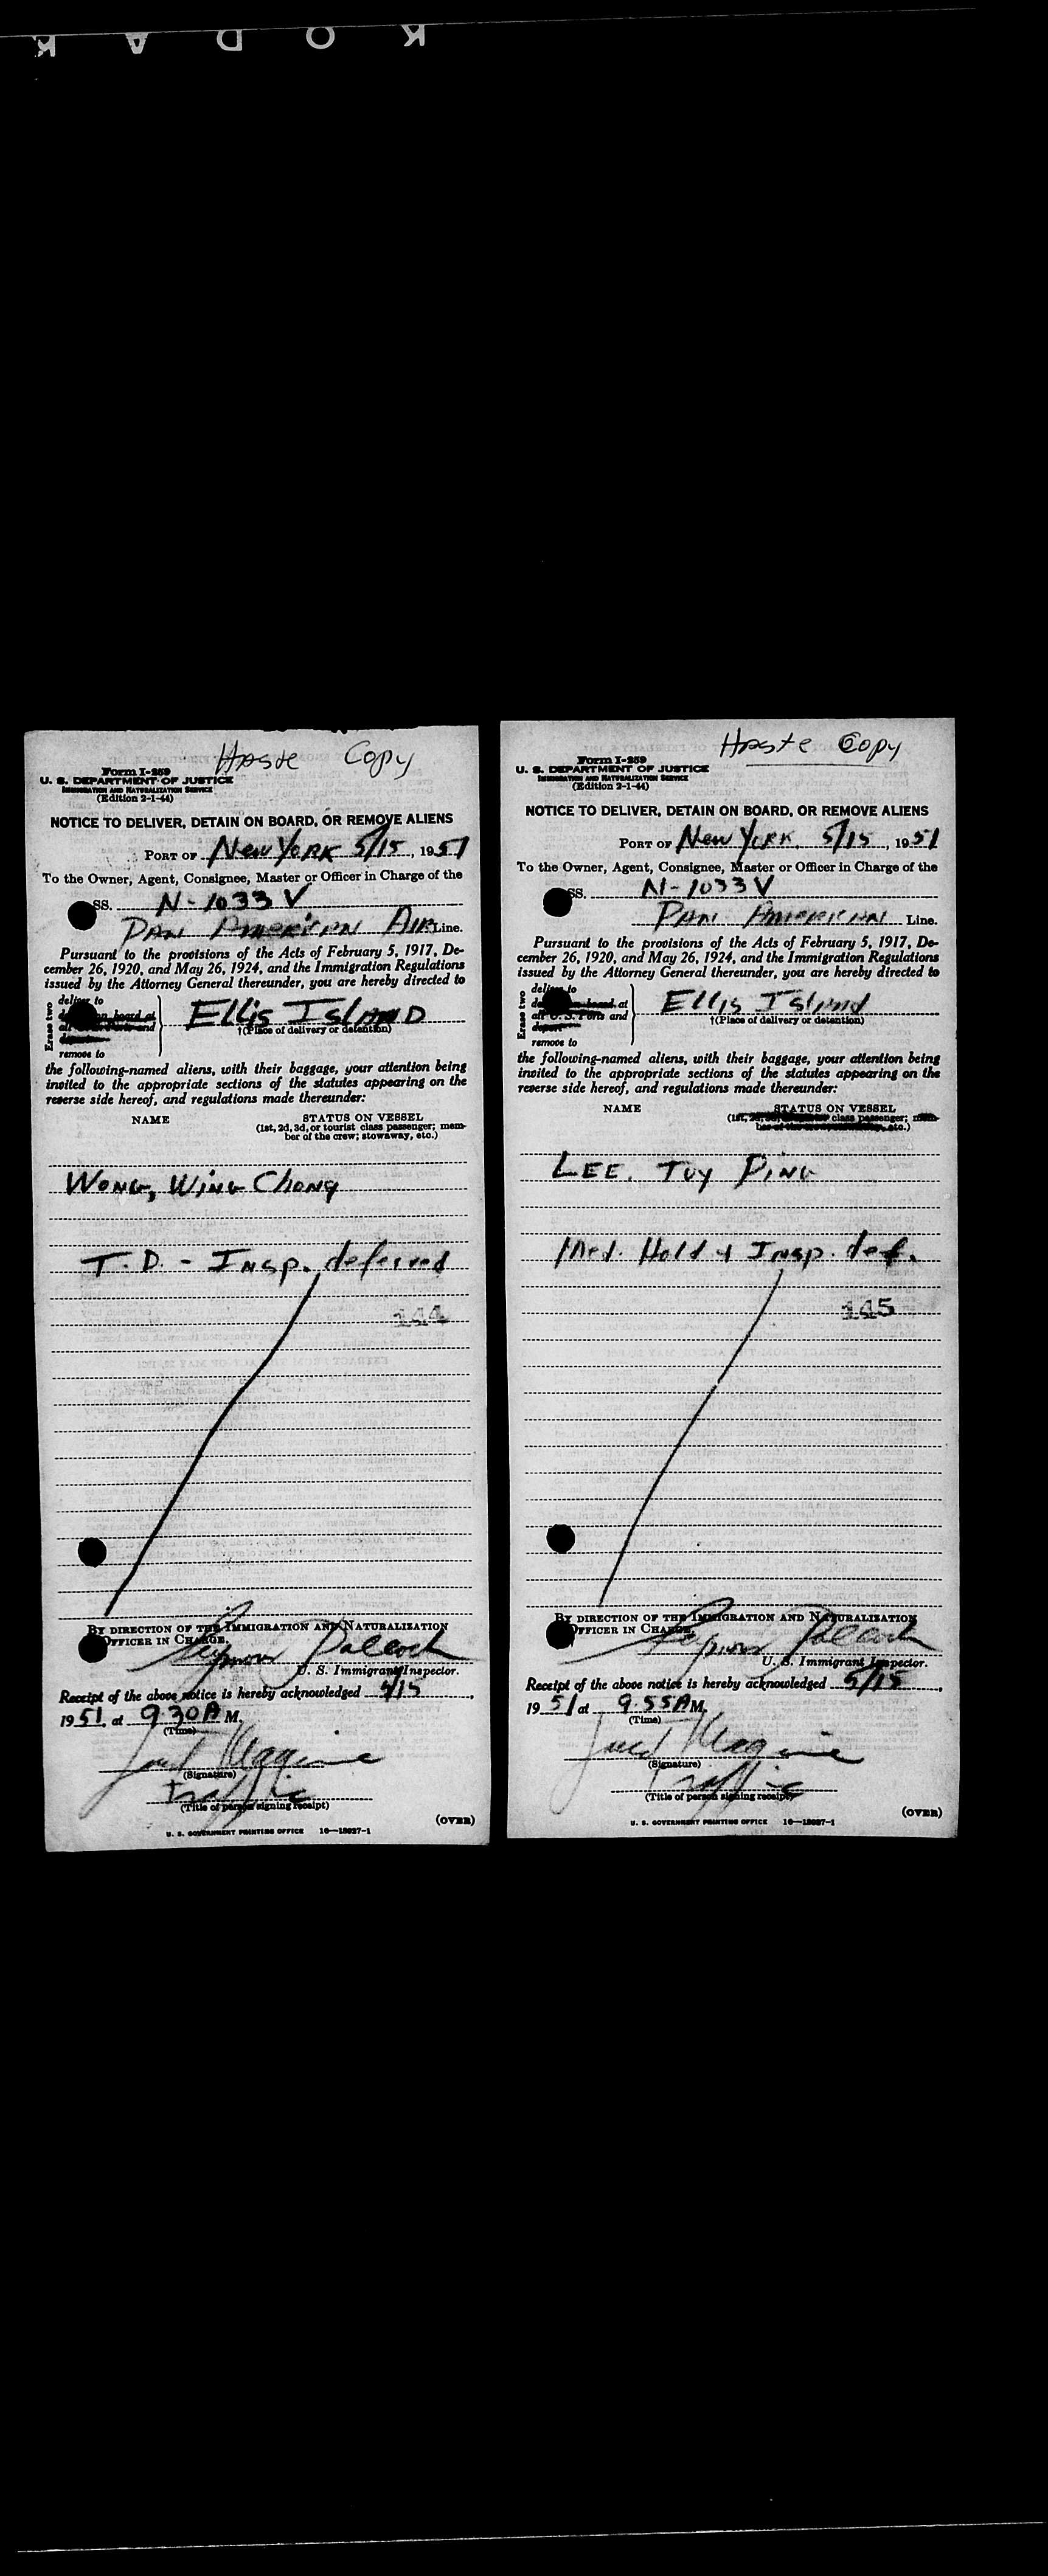 KODAK
Haste Copy
Form I-259
U. S. DEPARTMENT OF JUSTICE
IMMIGRATION AND NATURALIZATION SERVICE
(Edition 2-1-44)
NOTICE TO DELIVER, DETAIN ON BOARD, OR REMOVE ALIENS
PORT OF New York 5/15, 1951
To the Owner, Agent, Consignee, Master or Officer in Charge of the
SS. N-1033V
Pan American Air Line.
Pursuant to the provisions of the Acts of February 5, 1917, De-
cember 26, 1920, and May 26, 1924, and the Immigration Regulations
issued by the Attorney General thereunder, you are hereby directed to
Erase two
deliver to
Ellis Island
†(Place of delivery or detention)
remove to
the following-named aliens, with their baggage, your attention being
invited to the appropriate sections of the statutes appearing on the
reverse side hereof, and regulations made thereunder:
NAME STATUS ON VESSEL
(1st, 2d, 3d, or tourist class passenger; mem-
ber of the crew; stowaway, etc.)
Wong, Wing Chong
T.D. - Insp. deferred
144
BY DIRECTION OF THE IMMIGRATION AND NATURALIZATION
OFFICER IN CHARGE.
U. S. Immigrant Inspector.
Receipt of the above notice is hereby acknowledged 5/15,
1951, at 9:30A M.
(Time)
(Signature)
Traffic
(Title of person signing receipt)
(OVER)
U. S. GOVERNMENT PRINTING OFFICE 16—18027-1
Haste Copy
Form I-259
U. S. DEPARTMENT OF JUSTICE
IMMIGRATION AND NATURALIZATION SERVICE
(Edition 2-1-44)
NOTICE TO DELIVER, DETAIN ON BOARD, OR REMOVE ALIENS
PORT OF New York, 5/15, 1951
To the Owner, Agent, Consignee, Master or Officer in Charge of the
SS. N-1033V
Pan American Line.
Pursuant to the provisions of the Acts of February 5, 1917, De-
cember 26, 1920, and May 26, 1924, and the Immigration Regulations
issued by the Attorney General thereunder, you are hereby directed to
Erase two
deliver to
Ellis Island
†(Place of delivery or detention)
remove to
the following-named aliens, with their baggage, your attention being
invited to the appropriate sections of the statutes appearing on the
reverse side hereof, and regulations made thereunder:
NAME STATUS ON VESSEL
class passenger;
etc.)
LEE, Tuy Ping
Med. Hold & Insp. def.
145
BY DIRECTION OF THE IMMIGRATION AND NATURALIZATION
OFFICER IN CHARGE.
U. S. Immigrant Inspector.
Receipt of the above notice is hereby acknowledged 5/15,
1951 at 9:55A M.
(Time)
(Signature)
Traffic
(Title of person signing receipt)
(OVER)
U. S. GOVERNMENT PRINTING OFFICE 16—18027-1